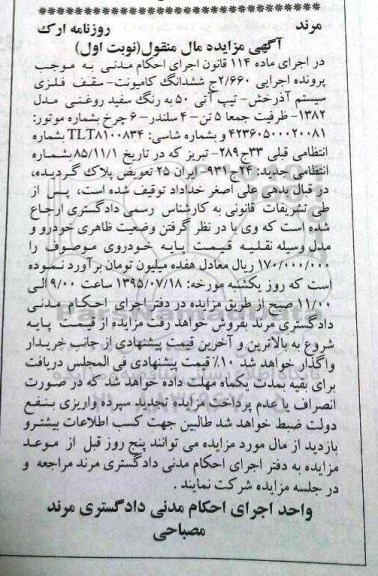 مرند روزنامه ارک
آگهی مزایده مال منقول(نوبت اول)
در اجرای ماده ۱۱۴ قانون اجرای احکام مدنی به موجب
پرونده اجرایی ۲/۶۶۰ج ششدانگ کامیونت- سقف فلزی
سیستم آذرخش- تیپ آتی ۵۰ به رنگ سفید روغنی مدل
۱۳۸۲- ظرفیت جمعا ۵ تن- ۴ سلندر- ۶ چرخ بشماره موتور:
۴۲۳۶۰۵۰۰۰۲۰۰۸۱ و بشماره شاسی: TLT۸۱۰۰۸۳۴ بشماره
انتظامی قبلی ۳۳ج۲۸۹- تبریز که در تاریخ ۸۵/۱۱/۱ بشماره
انتظامی جدید: ۲۴ج۹۳۱- ایران ۲۵ تعویض پلاک گردیده،
در قبال بدهی علی اصغر خداداد توقیف شده است، پس از
طی تشریفات قانونی به کارشناس رسمی دادگستری ارجاع
شده است که وی با در نظر گرفتن وضعیت ظاهری خودرو و
مدل وسیله نقلیه قیمت پایه خودروی موصوف را
۱۷۰/۰۰۰/۰۰۰ ریال معادل هفده میلیون تومان برآورد نموده
است که روز یکشنبه مورخه: ۱۳۹۵/۰۷/۱۸ ساعت ۹/۰۰ الی
۱۱/۰۰ صبح از طریق مزایده در دفتر اجرای احکام مدنی
دادگستری مرند بفروش خواهد رفت مزایده از قیمت پایه
شروع به بالاترین و آخرین قیمت پیشنهادی از جانب خریدار
واگذار خواهد شد ۱۰٪ قیمت پیشنهادی فی المجلس دریافت
برای بقیه بمدت یکماه مهلت داده خواهد شد که در صورت
انصراف یا عدم پرداخت مزایده تجدید سپرده واریزی بنفع
دولت ضبط خواهد شد طالبین جهت کسب اطلاعات بیشتر و
بازدید از مال مورد مزایده می توانند پنج روز قبل از موعد
مزایده به دفتر اجرای احکام مدنی دادگستری مرند مراجعه و
در جلسه مزایده شرکت نمایند .
واحد اجرای احکام مدنی دادگستری مرند
مصباحی